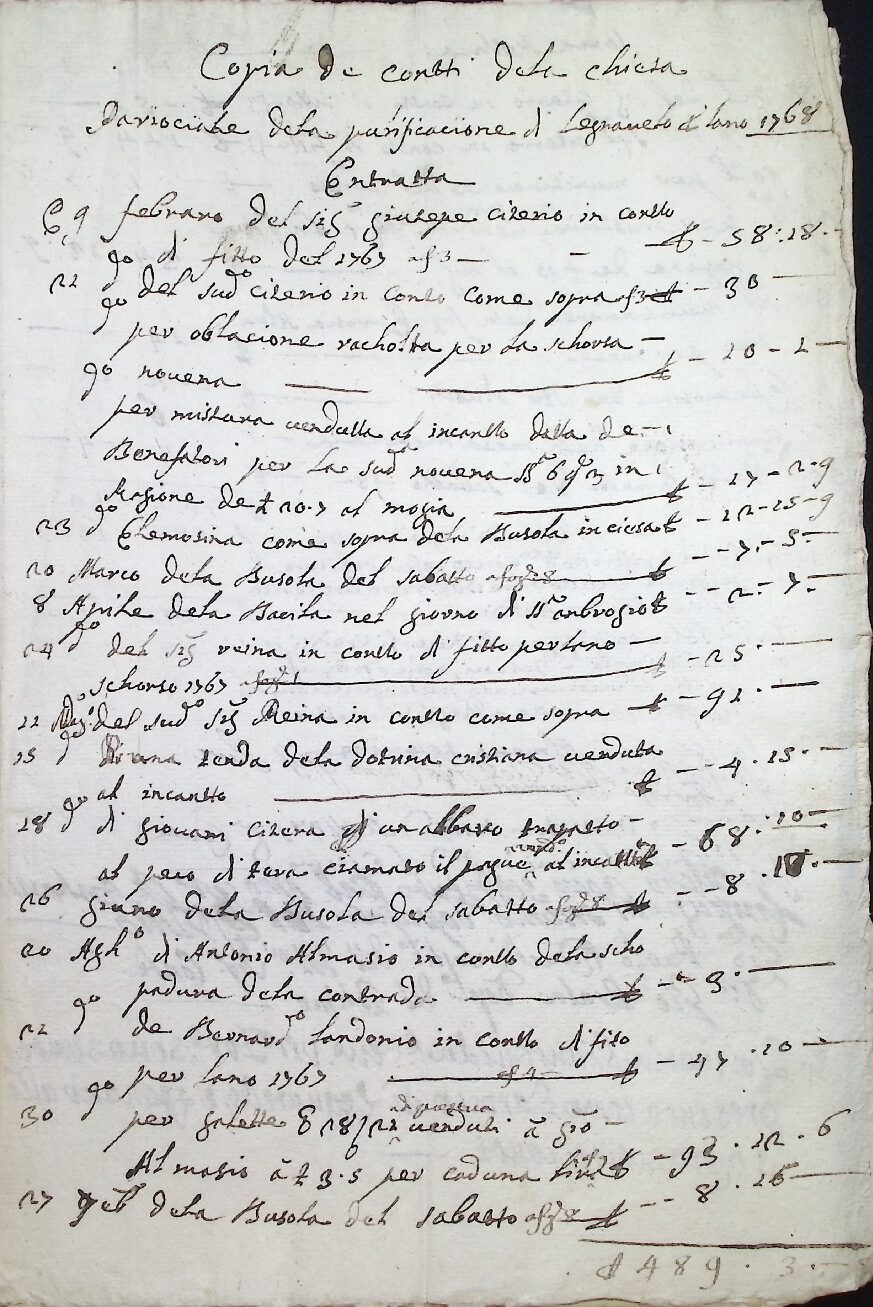 Copia de contti dela chiesa
Parociale dela purificacione di Legnanelo lano 1768
Entratta
9 febraro del Sig giusepe citerio in contto
di fitto del 1767 af 3 — ₤ - 58:18.
21 do del sudo citerio in conto come sopra f3 ₤ - 30
do per oblacione racholtta per la schorsa
novena — ₤ - 10 - 1
do per mistura venduta al incantto datta de
Benefatori per la sudª novena in
Ragione de ₤ 20.7 al mogia — ₤ - 17 - 2 - 9
23 do Elemosina come sopra dela Busola in ciesa ₤ - 12 - 15 - 9
20 Marco dela Busola del sabatto — ₤ - - 7 - 5 -
8 Aprile dela Bacila nel giorno di Sto ambrogio ₤ - - 2 - 7 -
24 do del Sig reina in contto di fitto per lano
schorso 1767 — ₤ - 25 -
11 Mago del sudo Sig Reina in contto come sopra ₤ - 91 -
15 do una tenda dela dotrina cristiana venduta
al incantto — ₤ - - 4 . 15 -
18 do di giovani citera di un albero
al peco di tera ciamato il al incantto ₤ - 68 : 10
26 giuno dela Busola del sabatto ₤ - - 8 .
20 Agto di Antonio Almasio in contto dela scho
padura dela contrada — ₤ - - 3 .
22 do de Bernardo landonio in contto di fito
per lano 1767 — f 4 — ₤ - 47 . 10
30 do per galette 28/22 di venduti à Gio
Almasio à ₤ 3.5 per caduna lira ₤ - 93 . 12 . 6
27 dela Busola del sabatto ₤ - - 8 . 16
₤ 489 . 3 . -